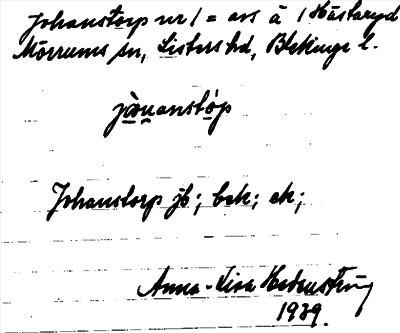 Johanstorp nr 1 = avs å 1 Hästaryd
Mörrums sn, Listers hd, Blekinge l.
jo̱u̱anstóp
Johanstorp jb; bck; ek;
Anna-Lisa Hedenstierna
1939.